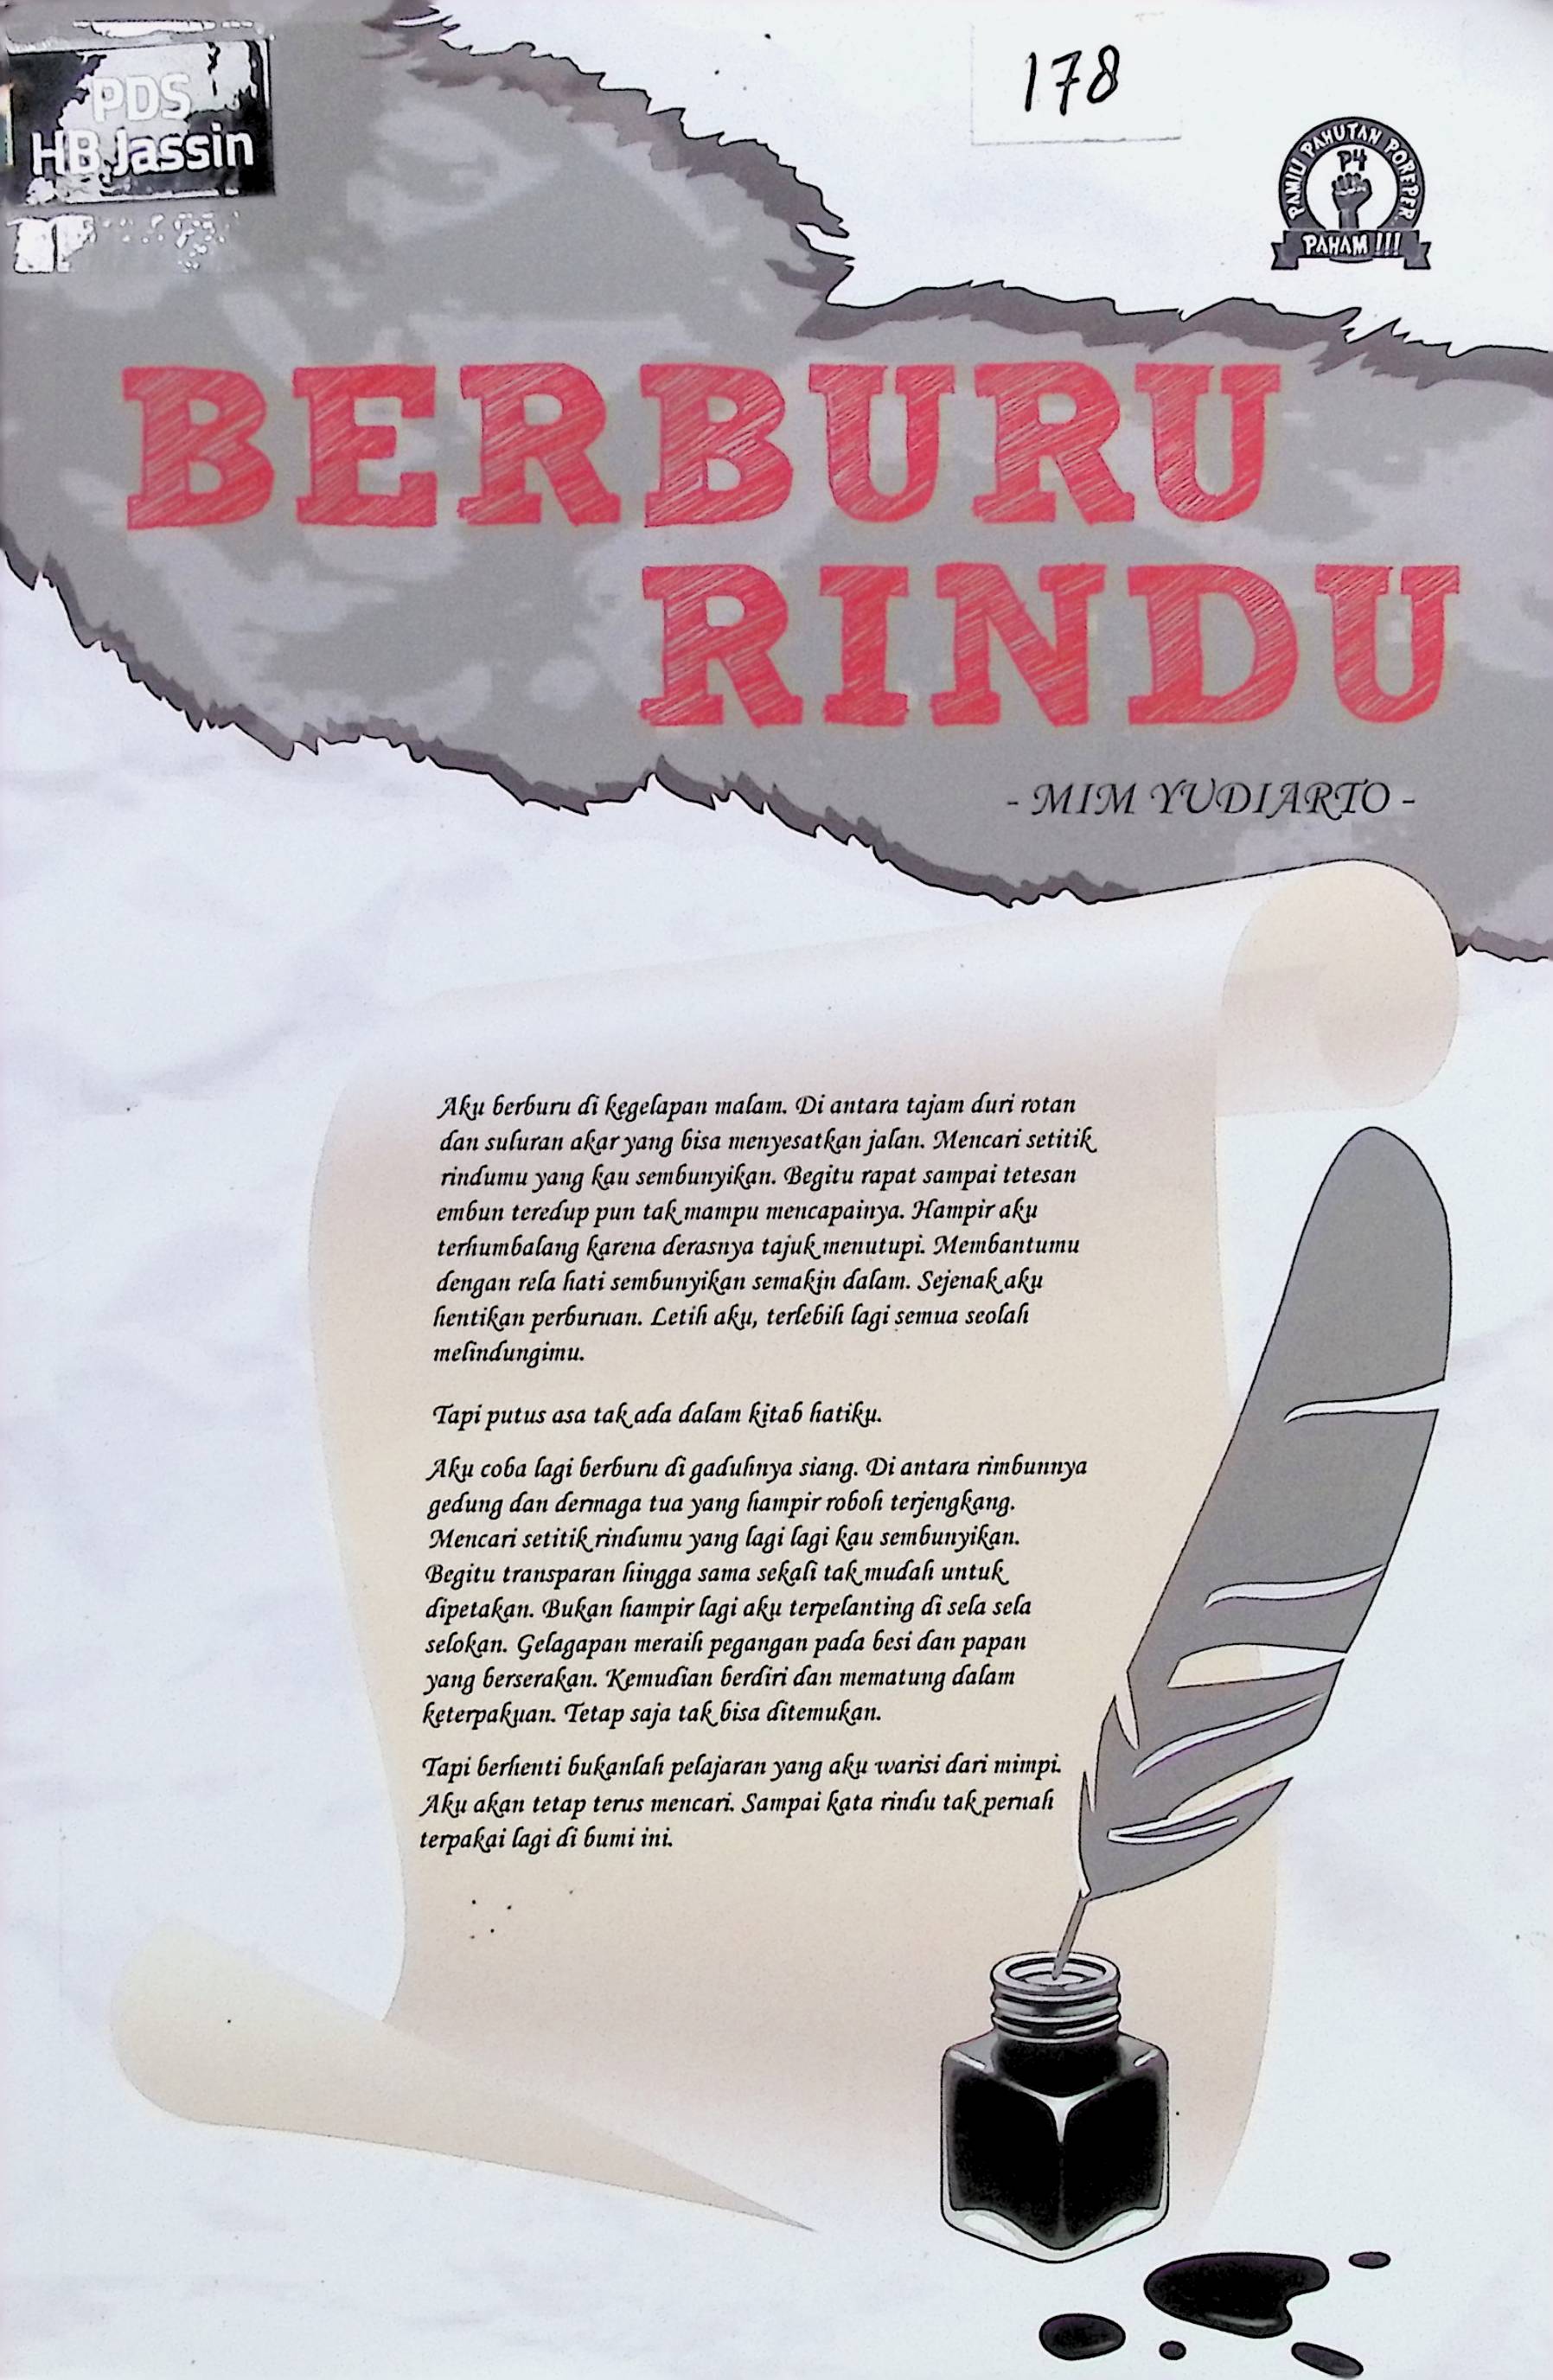 PDS
HB.Jassin
178
PAMILI PAHUTAN POREPER
P4
PAHAM !!!
BERBURU
RINDU
- MIM YUDIARTO -
Aku berburu di kegelapan malam. Di antara tajam duri rotan
dan suluran akar yang bisa menyesatkan jalan. Mencari setitik
rindumu yang kau sembunyikan. Begitu rapat sampai tetesan
embun teredup pun tak mampu mencapainya. Hampir aku
terhumbalang karena derasnya tajuk menutupi. Membantumu
dengan rela hati sembunyikan semakin dalam. Sejenak aku
hentikan perburuan. Letih aku, terlebih lagi semua seolah
melindungimu.
Tapi putus asa tak ada dalam kitab hatiku.
Aku coba lagi berburu di gaduhnya siang. Di antara rimbunnya
gedung dan dermaga tua yang hampir roboh terjengkang.
Mencari setitik rindumu yang lagi lagi kau sembunyikan.
Begitu transparan hingga sama sekali tak mudah untuk
dipetakan. Bukan hampir lagi aku terpelanting di sela sela
selokan. Gelagapan meraih pegangan pada besi dan papan
yang berserakan. Kemudian berdiri dan mematung dalam
keterpakuan. Tetap saja tak bisa ditemukan.
Tapi berhenti bukanlah pelajaran yang aku warisi dari mimpi.
Aku akan tetap terus mencari. Sampai kata rindu tak pernah
terpakai lagi di bumi ini.